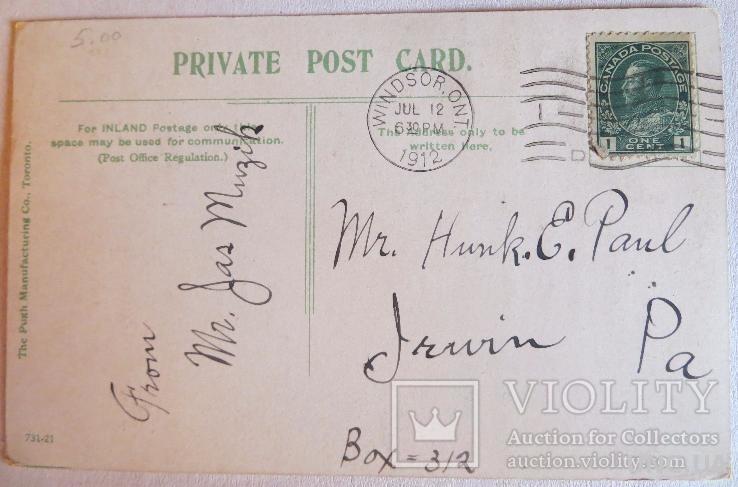 5.00
PRIVATE POST CARD.
For INLAND Postage only this
space may be used for communication.
(Post Office Regulation.)
The Address only to be
written Here.
WINDSOR, ONT
JUL 12
630PM
1912
CANADA POSTAGE
1 ONE CENT 1
The Pugh Manufacturing Co., Toronto.
From
Mr. Jas
Mr. Hunk. E. Paul
Irwin Pa
Box = 312
731-21
VIOLITY
Auction for Collectors
auction.violity.com